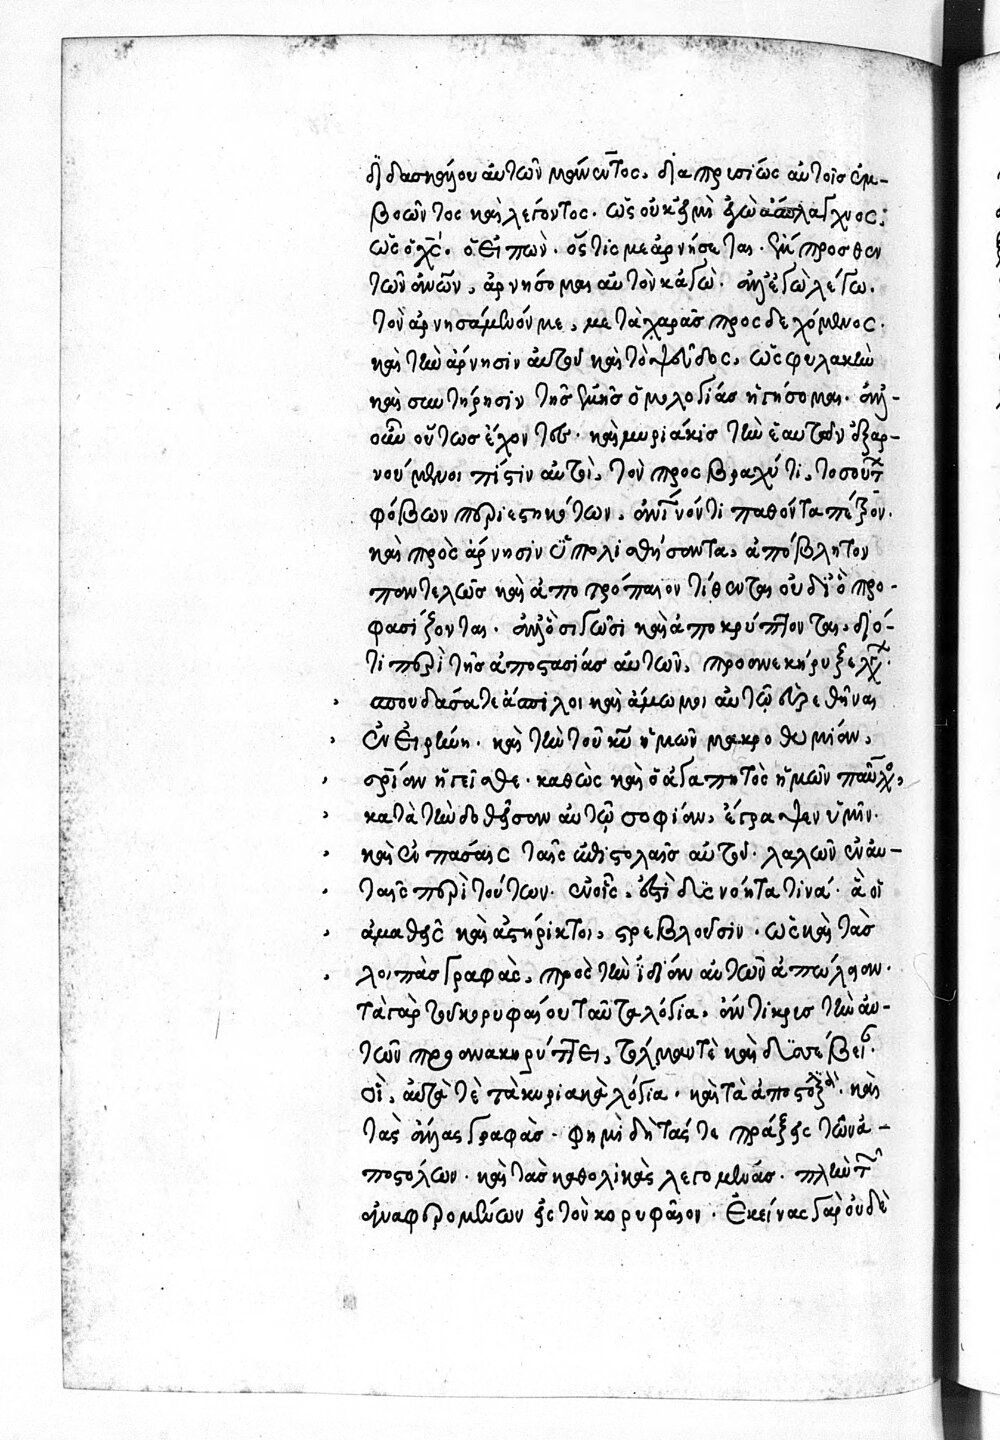 διδασκάλου αὐτῶν μανέντος. διαπρυσίως αὐτοῖς ἐμ-
βοῶντος καὶ λέγοντος. ὡς οὐκ εἰμὶ ἐγὼ ἄσπλαγχνος.
ὡς ὁ χς. ὁ εἰπών. ὅστις με ἀρνήσεται ἔμπροσθεν
τῶν ἀνων, ἀρνήσομαι αὐτὸν κἀγώ. ἀλλ' ἐγὼ λέγω.
τὸν ἀρνησάμενόν με, μετὰ χαρᾶς προσδεχόμενος.
καὶ τὴν ἄρνησιν αὐτοῦ καὶ τὸ ψεῦδος, ὡς φυλακὴν
καὶ σωτήρησιν τῆς ἐμῆς ὁμολογίας ἡγήσομαι. ἀλλ'
οὖν οὕτως ἔχοντες. καὶ μυριάκις τὴν ἑαυτῶν ἐξαρ-
νούμενοι πίστιν αὐτοὶ, τὸν πρὸς βραχύ τι, τοσούτ
φόβων περιεστηκότων, ἀν παθόντα
καὶ πρὸς ἄρνησιν ὑπολισθήσαντα, ἀπόβλητον
παντελῶς καὶ ἀποτρόπαιον τίθενται οὐδὲ ὃ προ-
φασίζονται. ἀλλ' ὃ σιγῶσι καὶ ἀποκρύπτονται, διό-
τι περὶ τῆς ἀποστασίας αὐτῶν, προανεκήρυξε λεχ
σπουδάσατε ἄσπιλοι καὶ ἄμωμοι αὐτῷ εὑρεθῆναι
ἐν εἰρήνῃ. καὶ τὴν τοῦ κυ ἡμῶν μακροθυμίαν,
σριαν ἡγεῖσθε. καθὼς καὶ ὁ ἀγαπητὸς ἡμῶν παῦλος,
κατὰ τὴν δοθεῖσαν αὐτῷ σοφίαν, ἔγραψεν ὑμῖν.
καὶ ἐν πάσαις ταῖς ἐπιστολαῖς αὐτοῦ. λαλῶν ἐν αὐ-
ταῖς περὶ τούτων. ἐν οἷς, ἐστὶ δυσνόητά τινα. ἃ οἱ
ἀμαθεῖς καὶ ἀστήρικτοι, στρεβλοῦσιν. ὡς καὶ τὰς
λοιπὰς γραφὰς, πρὸς τὴν ἰδίαν αὐτῶν ἀπώλειαν.
τὰ γὰρ τοῦ κορυφαίου ταῦτα λόγια, ἄντικρυς τὴν αὐ-
τῶν προανακηρύττει, τόλμαν τὲ καὶ δυσσέβειαν.
οἱ, αὐτά τε τὰ κυριακὰ λόγια. καὶ τὰ ἀποστολικά. καὶ
τὰς ἄλλας γραφὰς. φημὶ δὴ τάς τε πράξεις τῶν ἀ-
ποστόλων. καὶ τὰς καθολικὰς λεγομένας. πλὴν τῶν
ἀναφερομένων εἰς τὸν κορυφαῖον. ἐκείνας γὰρ οὐδὲ